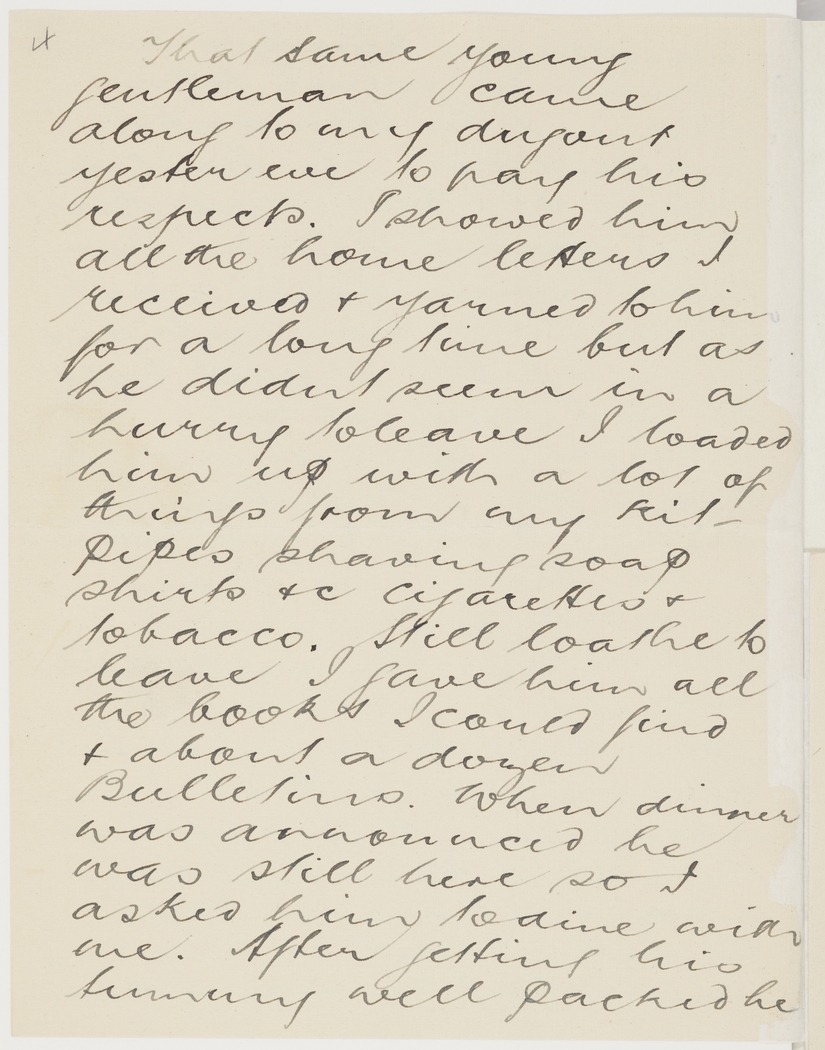 That same young
gentleman came
along to my dugout
yester eve to pay his
respects. I showed him
all the home letters I
received & yarned to him
for a long time but as
he didnt seem in a
hurry to leave I loaded
him up with a lot of
things from my kit -
Pipes shaving soap
shirts &c cigarettes &
tobacco. Still loathe to
leave I gave him all
the books I could find
& about a dozen
Bulletins. When dinner
was announced he
was still here so I
asked him to dine with
me. After getting his
tummy well packed he